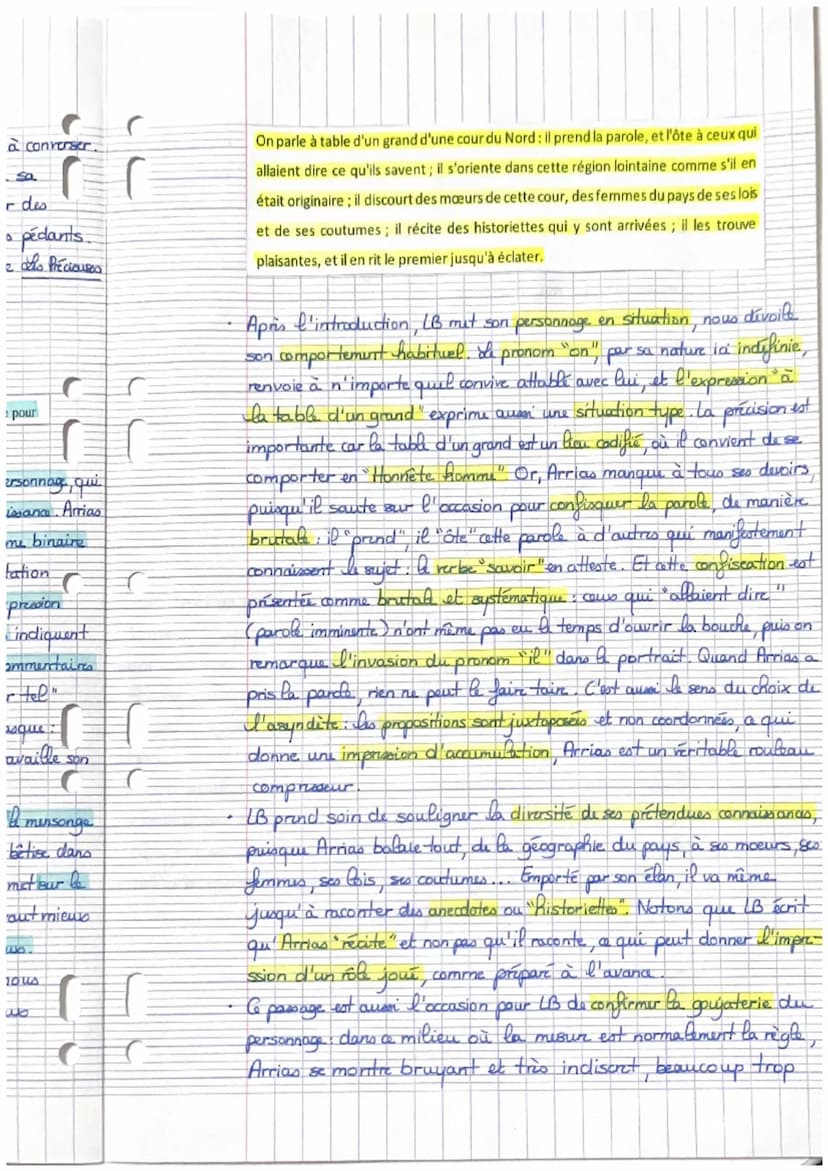 à converser.
sa
r des
pédants.
des Précieuses
pour
ersonnage, qui
issance. Arrias
me binaire
tation
pression
indiquent
ommentaires
r tel"
usque :
availle son
d mensonge
bêtise dans
met sur le
aut mieux
nous
On parle à table d'un grand d'une cour du Nord : il prend la parole, et l'ôte à ceux qui
allaient dire ce qu'ils savent ; il s'oriente dans cette région lointaine comme s'il en
était originaire ; il discourt des mœurs de cette cour, des femmes du pays de ses lois
et de ses coutumes ; il récite des historiettes qui y sont arrivées ; il les trouve
plaisantes, et il en rit le premier jusqu'à éclater.
· Après l'introduction, LB met son personnage en situation, nous dévoile
son comportement habituel. Le pronom "on", par sa nature ici indéfinie,
renvoie à n'importe quel convive attablé avec lui, et l'expression "à
la table d'un grand" exprime aussi une situation type. La précision est
importante car la table d'un grand est un lieu codifié, où il convient de se
comporter en "Honnête homme". Or, Arrias manque à tous ses devoirs,
puisqu'il saute sur l'occasion pour confisquer la parole, de manière
brutale : il "prend", il "ôte" cette parole à d'autres qui manifestement
connaissent le sujet : le verbe "savoir" en atteste. Et cette confiscation est
présentée comme brutale et systématique : ceux qui "allaient dire"
(parole imminente) n'ont même pas eu le temps d'ouvrir la bouche, puis on
remarque l'invasion du pronom "il" dans le portrait. Quand Arrias a
pris la parole, rien ne peut le faire taire. C'est aussi le sens du choix de
l'asyndète : les propositions sont juxtaposées et non coordonnées, ce qui
donne une impression d'accumulation, Arrias est un véritable rouleau
compresseur.
· LB prend soin de souligner la diversité de ses prétendues connaissances,
puisque Arrias balaie tout, de la géographie du pays, à ses moeurs, ses
femmes, ses lois, ses coutumes... Emporté par son élan, il va même
jusqu'à raconter des anecdotes ou "historiettes". Notons que LB écrit
qu'Arrias "récite" et non pas qu'il raconte, ce qui peut donner l'impre-
ssion d'un rôle joué, comme préparé à l'avance.
· Ce passage est aussi l'occasion pour LB de confirmer la goujaterie du
personnage : dans ce milieu où la mesure est normalement la règle,
Arrias se montre bruyant et très indiscret, beaucoup trop